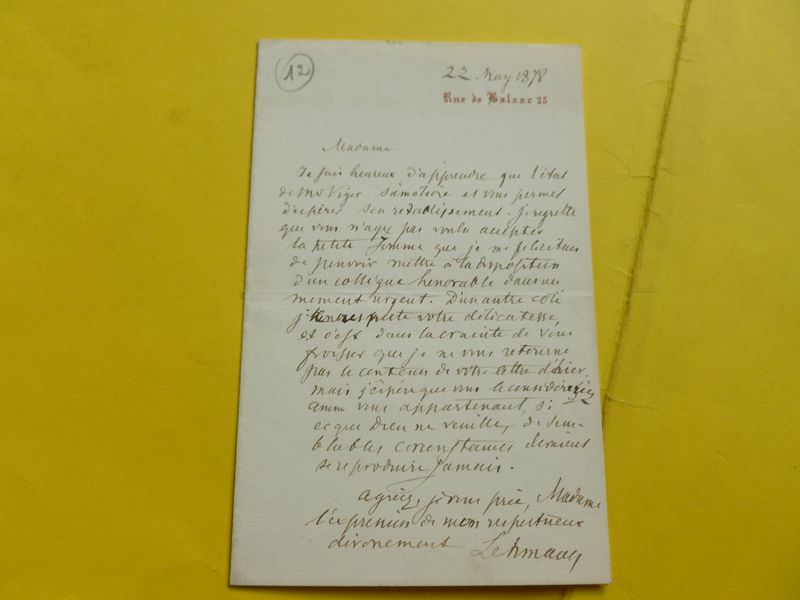 12
22 May 1878
Rue de Balzac 23
Madame
Je suis heureux d'apprendre que l'état
de Mr Viger s'améliore et vous permet
d'espérer son rétablissement. je regrette
que vous n'ayez pas voulu accepter
la petite somme que je me félicitais
de pouvoir mettre à la disposition
d'un collègue honorable dans un
moment urgent. D'un autre côté
je respecte votre délicatesse
et c'est dans la crainte de vous
froisser que je ne vous retourne
pas le contenu de votre lettre d'hier
mais j'espère que vous le considérerez
comme vous appartenant, si
ce que Dieu ne veuille, de sem-
blables circonstances devaient
se reproduire jamais.
Agréez, je vous prie, Madame
l'expression de mon respectueux
dévouement Lehmann